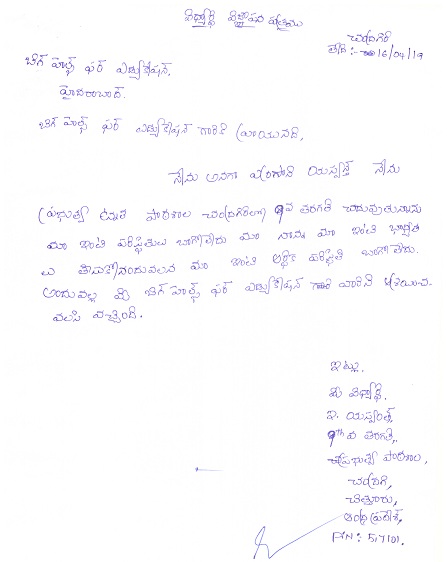 విద్యార్థి విజ్ఞాపన పత్రము
చంద్రగిరి
తేది :- 16/04/19
బిగ్ హెల్ప్ ఫర్ ఎడ్యుకేషన్,
హైదరాబాద్.
బిగ్ హెల్ప్ ఫర్ ఎడ్యుకేషన్ గారికి వ్రాయునది,
నేను అనగా యస్వంత్ నేను
ప్రభుత్వ ఉన్నత పాఠశాల చంద్రగిరిలో 9వ తరగతి చదువుతున్నాను
మా ఇంటి పరిస్థితులు బాగాలేదు మా నాన్న మా ఇంటి బాధ్యత
లు మా ఇంటి ఆర్థిక పరిస్థితి బాగాలేదు.
అందువల్ల మీ బిగ్ హెల్ప్ ఫర్ ఎడ్యుకేషన్ గారి వారిని ఆశ్రయించ
వలసి వచ్చింది.
ఇట్లు,
మీ విద్యార్థి,
ఇ. యస్వంత్,
9th వ తరగతి,
ప్రభుత్వ పాఠశాల,
చంద్రగిరి,
చిత్తూరు,
ఆంధ్రప్రదేశ్,
PIN : 517101.